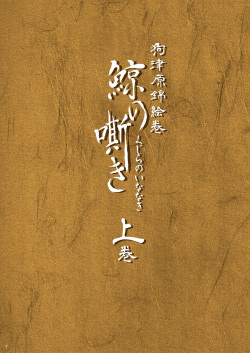 狗津原錦絵巻
鯨の嘶き
くじらのいななき
上巻